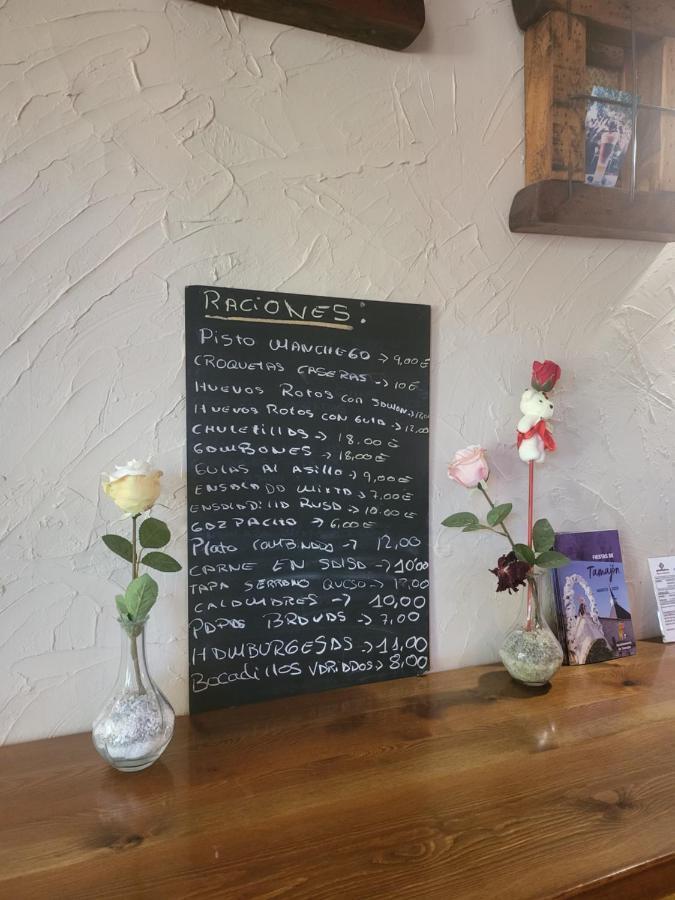 RACIONES:
PISTO MANCHEGO → 9,00€
CROQUETAS CASERAS → 10€
HUEVOS ROTOS CON JAMON →
HUEVOS ROTOS CON GULA → 12,00
CHULETILLAS → 18.00 €
GAMBONES → 18,00 €
GULAS AL AJILLO → 9,00 €
ENSALADA MIXTA → 7,00 €
ENSALADILLA RUSA → 10.00 €
GAZPACHO → 6,00 €
PLATO COMBINADO → 12,00
CARNE EN SALSA → 10'00
TAPA SERRANO QUESO → 12,00
CALAMARES → 10,00
PAPAS BRAVAS → 7,00
HAMBURGESAS → 11,00
Bocadillos VARIADOS → 8,00
FIESTAS DE
Tamajón